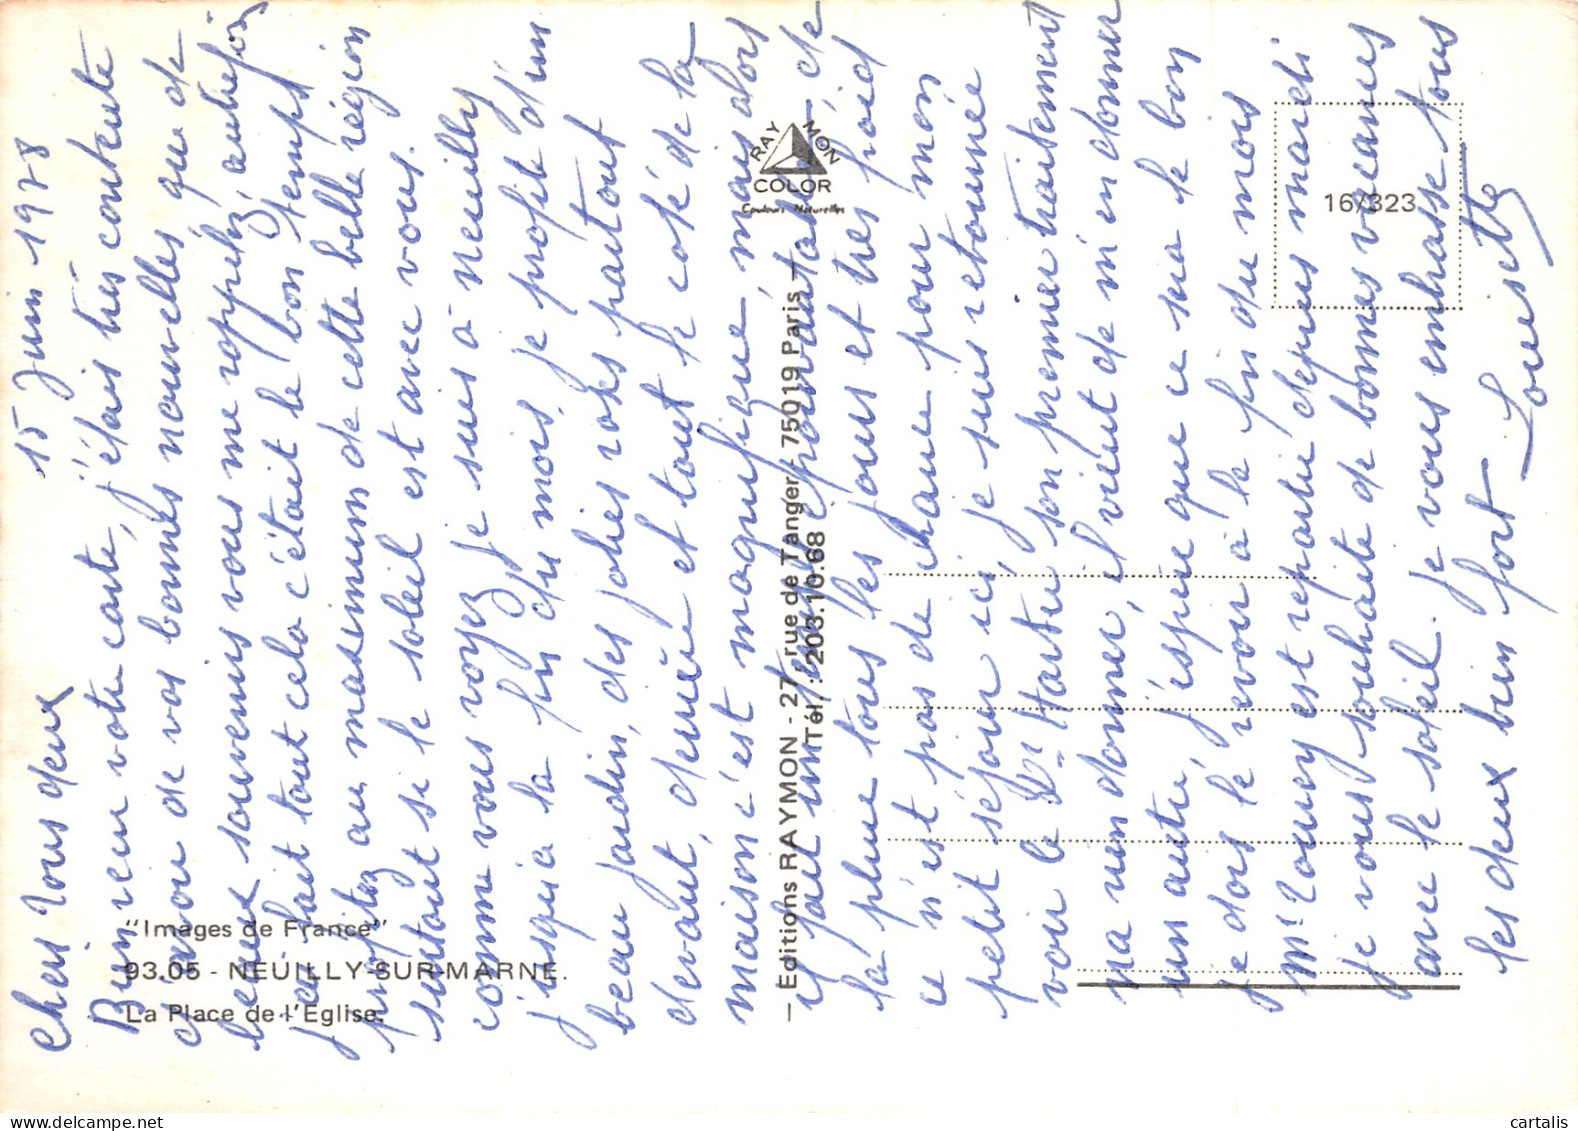 15 Juin 1978
Chers Vous deux
Bien reçu votre carte, j'étais très contente
d'avoir de vos bonnes nouvelles, que de
beaux souvenirs vous me rappelez, autrefois
je fait tout cela c'était le bon temps
profitez au maximum de cette belle région
surtout si le soleil est avec vous.
comme vous voyez je suis à Neuilly
jusqu'à la fin du mois, je profite d'un
beau jardin, des jolies roses partout
devant, derrière et tout le coté de la
maison c'est magnifique, mais alors
il fait un temps épouvatable, de
la pluie tous les jours et très froid
ce n'est pas de chance pour mon
petit séjour ici, je suis retournée
voir le Dr son premier traitement
n'a rien donner, il vient de m'en donner
un autre, j'espère que ce sera le bon
je dois le revoir à la fin du mois
Mr est repartie depuis mardi
je vous souhaite de bonnes vacances
avec le soleil. je vous embrasse tous
les deux bien fort Louisette
"Images de France"
93.05 - NEUILLY-SUR-MARNE.
La Place de l'Eglise.
— Éditions RAYMON - 27, rue de Tanger - 75019 Paris —
Tél. : 203.10.68
RAYMON
COLOR
Couleurs Naturelles
16/323
cartalis